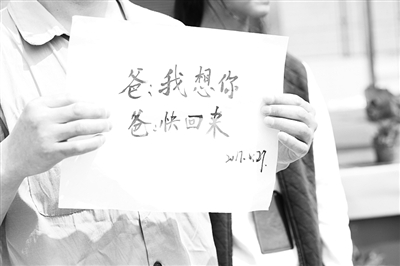 爸:我想你
爸:快回来
2017.4.27.